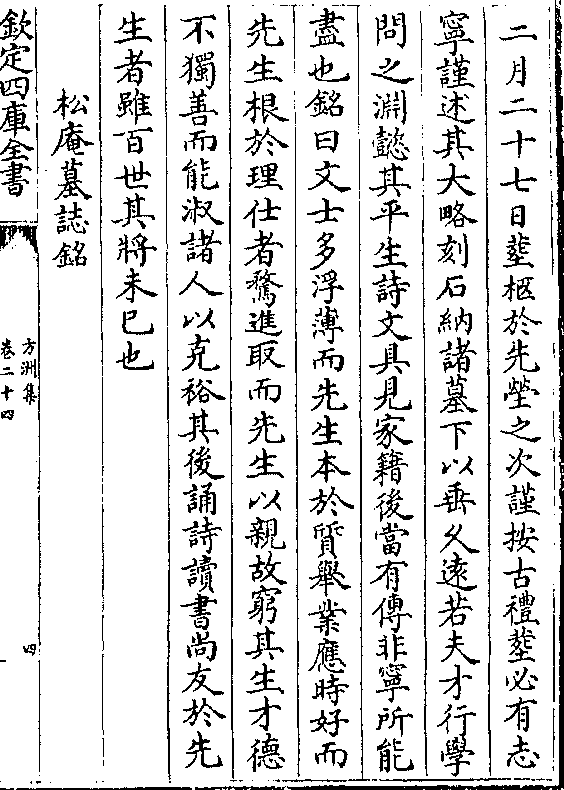 二月二十七日塟柩於先塋之次謹按古禮塟必有志
寧謹述其大略刻石納諸墓下以垂久遠若夫才行學
問之淵懿其平生詩文具見家籍後當有傳非寧所能
盡也銘曰文士多浮薄而先生本於質舉業應時好而
先生根於理仕者騖進取而先生以親故窮其生才德
不獨善而能淑諸人以克裕其後誦詩讀書尚友於先
生者雖百世其將未已也
松庵墓誌銘
欽定四庫全書
方洲集
卷二十四
四